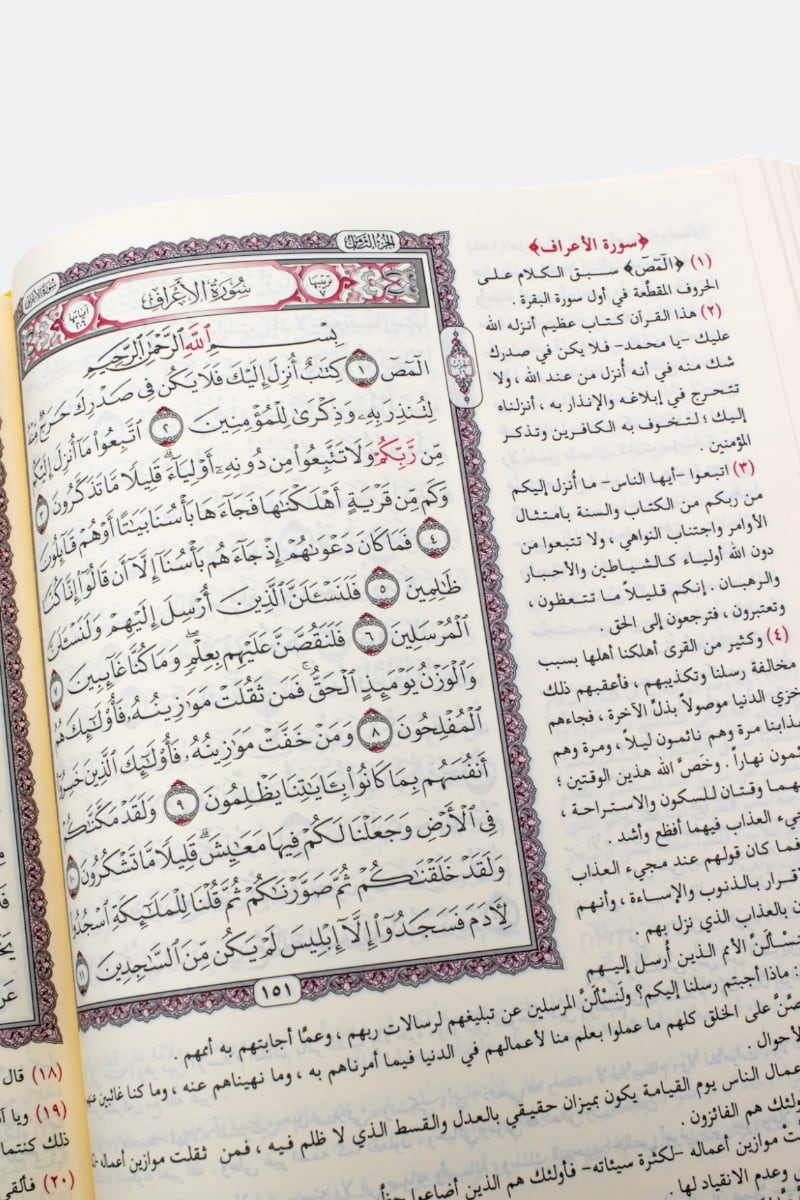 الجزء الثامن
سورة الأعراف
ترتيبها ٧
سورة الأعراف
آياتها ٢٠٦
بِسْمِ ٱللَّهِ ٱلرَّحْمَٰنِ ٱلرَّحِيمِ
الٓمٓصٓ ١ كِتَٰبٌ أُنزِلَ إِلَيْكَ فَلَا يَكُن فِى صَدْرِكَ حَرَجٌ مِّنْهُ
لِتُنذِرَ بِهِۦ وَذِكْرَىٰ لِلْمُؤْمِنِينَ ٢ ٱتَّبِعُوا۟ مَآ أُنزِلَ إِلَيْكُم
مِّن رَّبِّكُمْ وَلَا تَتَّبِعُوا۟ مِن دُونِهِۦٓ أَوْلِيَآءَ ۗ قَلِيلًا مَّا تَذَكَّرُونَ ٣
وَكَم مِّن قَرْيَةٍ أَهْلَكْنَٰهَا فَجَآءَهَا بَأْسُنَا بَيَٰتًا أَوْ هُمْ قَآئِلُونَ
٤ فَمَا كَانَ دَعْوَىٰهُمْ إِذْ جَآءَهُم بَأْسُنَآ إِلَّآ أَن قَالُوٓا۟ إِنَّا كُنَّا
ظَٰلِمِينَ ٥ فَلَنَسْـَٔلَنَّ ٱلَّذِينَ أُرْسِلَ إِلَيْهِمْ وَلَنَسْـَٔلَنَّ
ٱلْمُرْسَلِينَ ٦ فَلَنَقُصَّنَّ عَلَيْهِم بِعِلْمٍ ۖ وَمَا كُنَّا غَآئِبِينَ ٧
وَٱلْوَزْنُ يَوْمَئِذٍ ٱلْحَقُّ ۚ فَمَن ثَقُلَتْ مَوَٰزِينُهُۥ فَأُو۟لَٰٓئِكَ هُمُ
ٱلْمُفْلِحُونَ ٨ وَمَنْ خَفَّتْ مَوَٰزِينُهُۥ فَأُو۟لَٰٓئِكَ ٱلَّذِينَ خَسِرُوٓا۟
أَنفُسَهُم بِمَا كَانُوا۟ بِـَٔايَٰتِنَا يَظْلِمُونَ ٩ وَلَقَدْ مَكَّنَّٰكُمْ
فِى ٱلْأَرْضِ وَجَعَلْنَا لَكُمْ فِيهَا مَعَٰيِشَ ۗ قَلِيلًا مَّا تَشْكُرُونَ ١٠
وَلَقَدْ خَلَقْنَٰكُمْ ثُمَّ صَوَّرْنَٰكُمْ ثُمَّ قُلْنَا لِلْمَلَٰٓئِكَةِ ٱسْجُدُوا۟
لِـَٔادَمَ فَسَجَدُوٓا۟ إِلَّآ إِبْلِيسَ لَمْ يَكُن مِّنَ ٱلسَّٰجِدِينَ ١١
١٥١
﴿سورة الأعراف﴾
(١) ﴿الٓمٓصٓ﴾ سبق الكلام على
الحروف المقطّعة في أول سورة البقرة .
(٢) هذا القرآن كتاب عظيم أنزله الله
عليك -يا محمد- فلا يكن في صدرك
شك منه في أنه أُنزل من عند الله ، ولا
تتحرج في إبلاغه والإنذار به ، أنزلناه
إليك ؛ لتخوف به الكافرين وتذكر
المؤمنين .
(٣) اتبعوا -أيها الناس- ما أُنزل إليكم
من ربكم من الكتاب والسنة بامتثال
الأوامر واجتناب النواهي ، ولا تتبعوا من
دون الله أولياء كالشياطين والأحبار
والرهبان . إنكم قليلاً ما تتعظون ،
وتعتبرون ، فترجعون إلى الحق .
(٤) وكثير من القرى أهلكنا أهلها بسبب
مخالفة رسلنا وتكذيبهم ، فأعقبهم ذلك
خزي الدنيا موصولاً بذلّ الآخرة ، فجاءهم
عذابنا مرة وهم نائمون ليلاً ، ومرة وهم
نهاراً . وخصَّ الله هذين الوقتين ؛
وقتان للسكون والاستراحة ،
العذاب فيهما أفظع وأشد .
فما كان قولهم عند مجيء العذاب
بالذنوب والإساءة ، وأنهم
بالعذاب الذي نزل بهم .
الأمم الذين أُرسل إليهم
: ماذا أجبتم رسلنا إليكم؟ ولَنسْألَنَّ المرسلين عن تبليغهم لرسالات ربهم ، وعمَّا أجابتهم به أممهم .
على الخلق كلهم ما عملوا بعلم منا لأعمالهم في الدنيا فيما أمرناهم به ، وما نهيناهم عنه ، وما كنا غائبين
الأحوال .
الناس يوم القيامة يكون بميزان حقيقي بالعدل والقسط الذي لا ظلم فيه ، فمن ثقلت موازين أعماله
هم الفائزون .
موازين أعماله -لكثرة سيئاته- فأولئك هم الذين أضاعوا
وعدم الانقياد لها .
(١٨) قال
(١٩) ويا
ذلك
(٢٠)